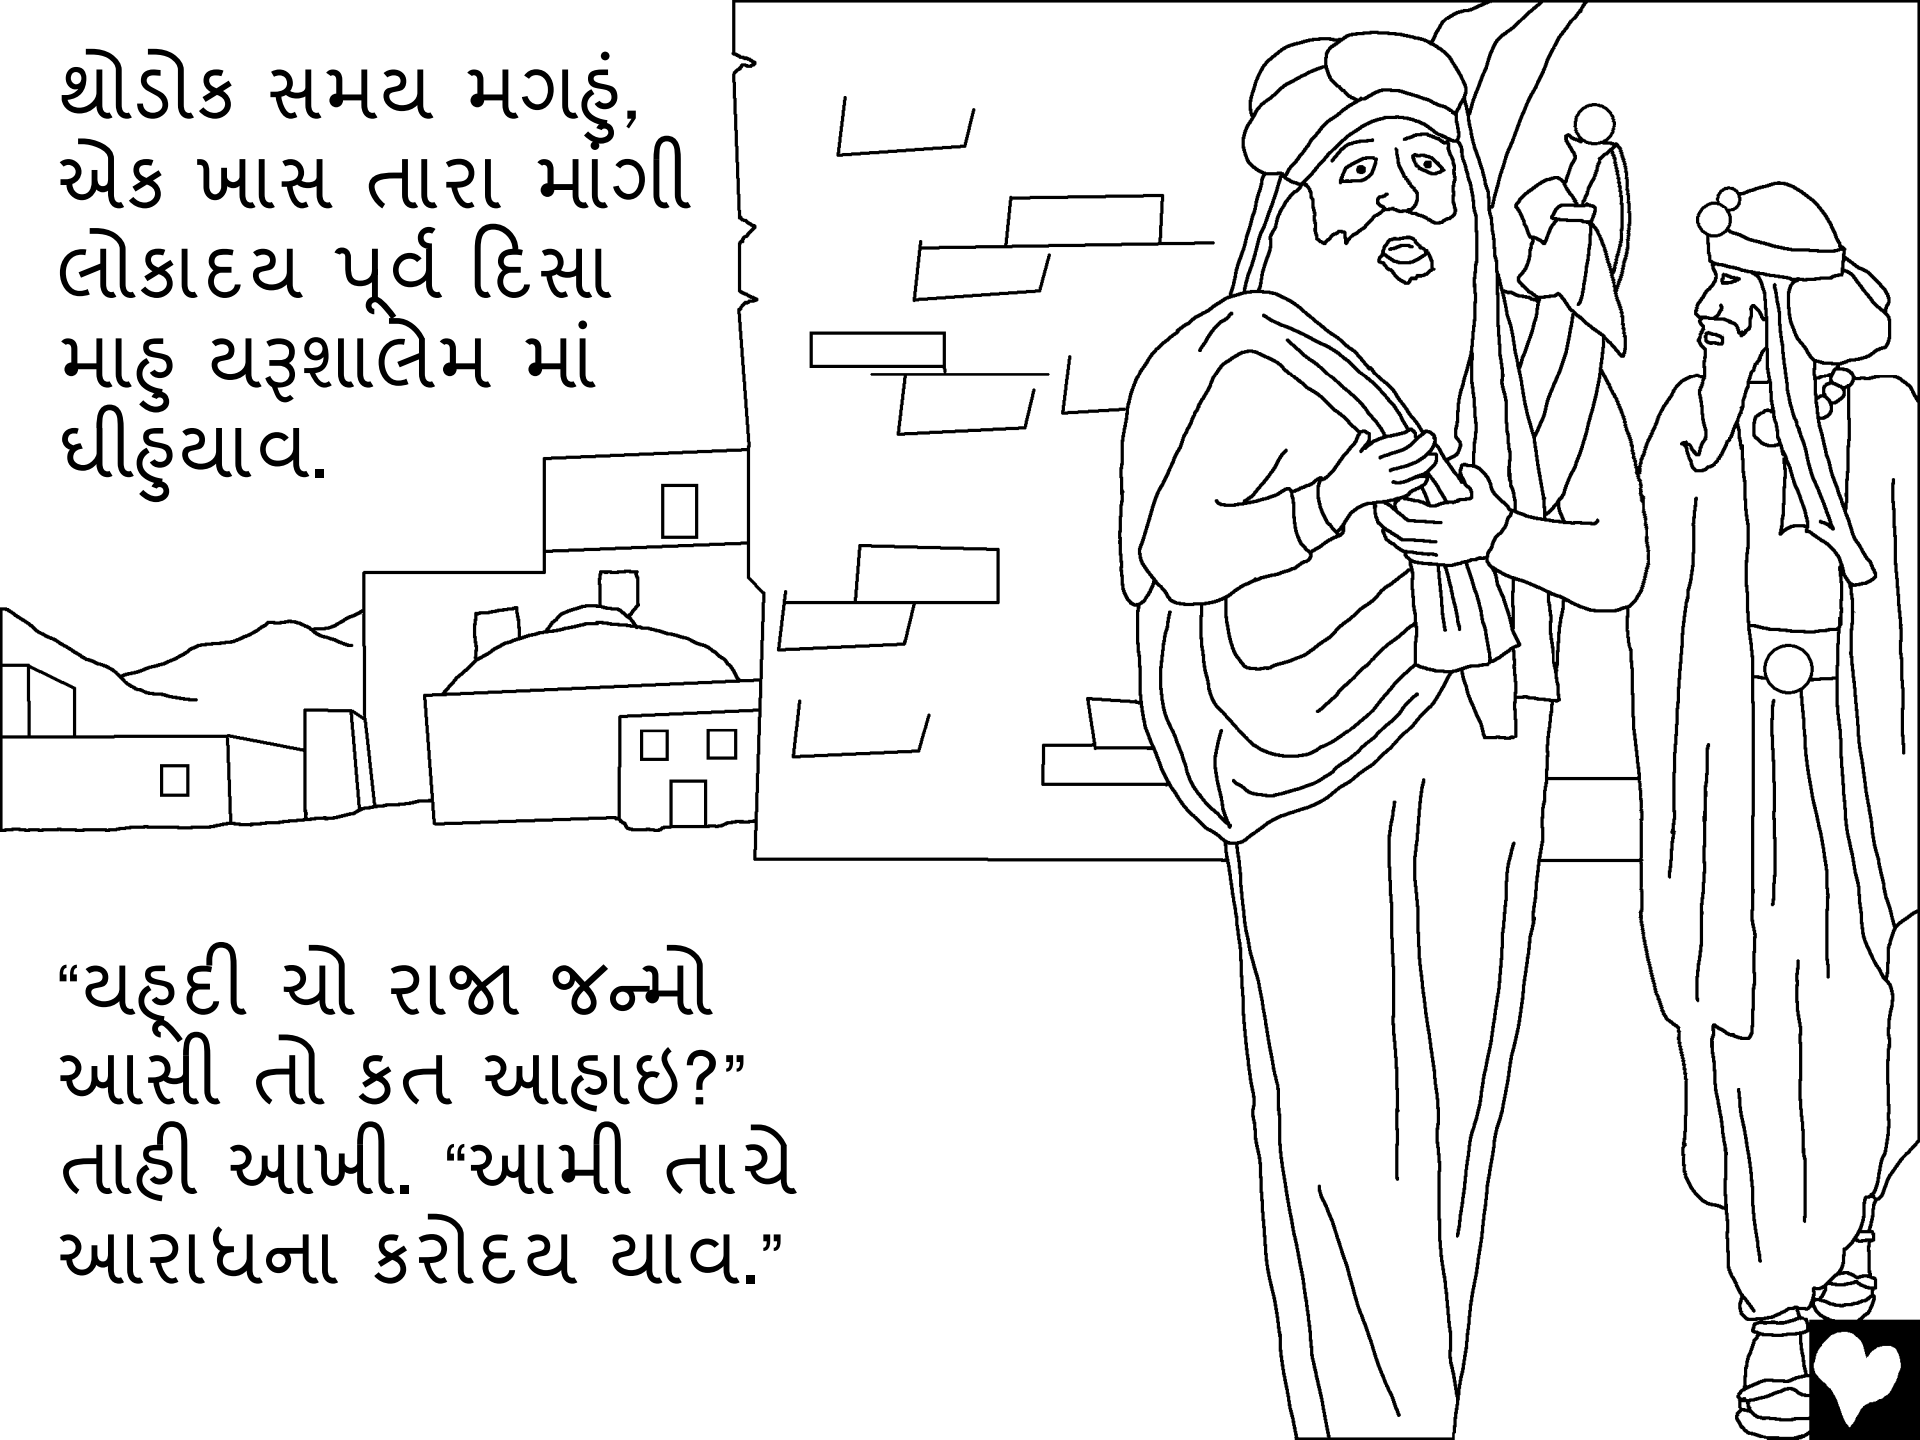 થોડોક સમય મગહું,
એક ખાસ તારા માંગી
લોકાદય પૂર્વ દિસા
માહુ યરૂશાલેમ માં
ઘીહુયાવ.
“યહૂદી ચો રાજા જન્મો
આસી તો કત આહાઇ?”
તાહી આખી. “આમી તાચે
આરાધના કરોદય યાવ.”